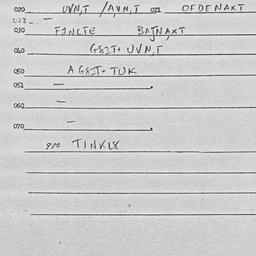 020 UVN,T /AVN,T 021 OFDENAXT
022 —
030 FINCTE BATNAXT
040 G8IT+ UVN,T
050 AG8IT+ TUK
051 —
060 —
070 —
900 TINKL8